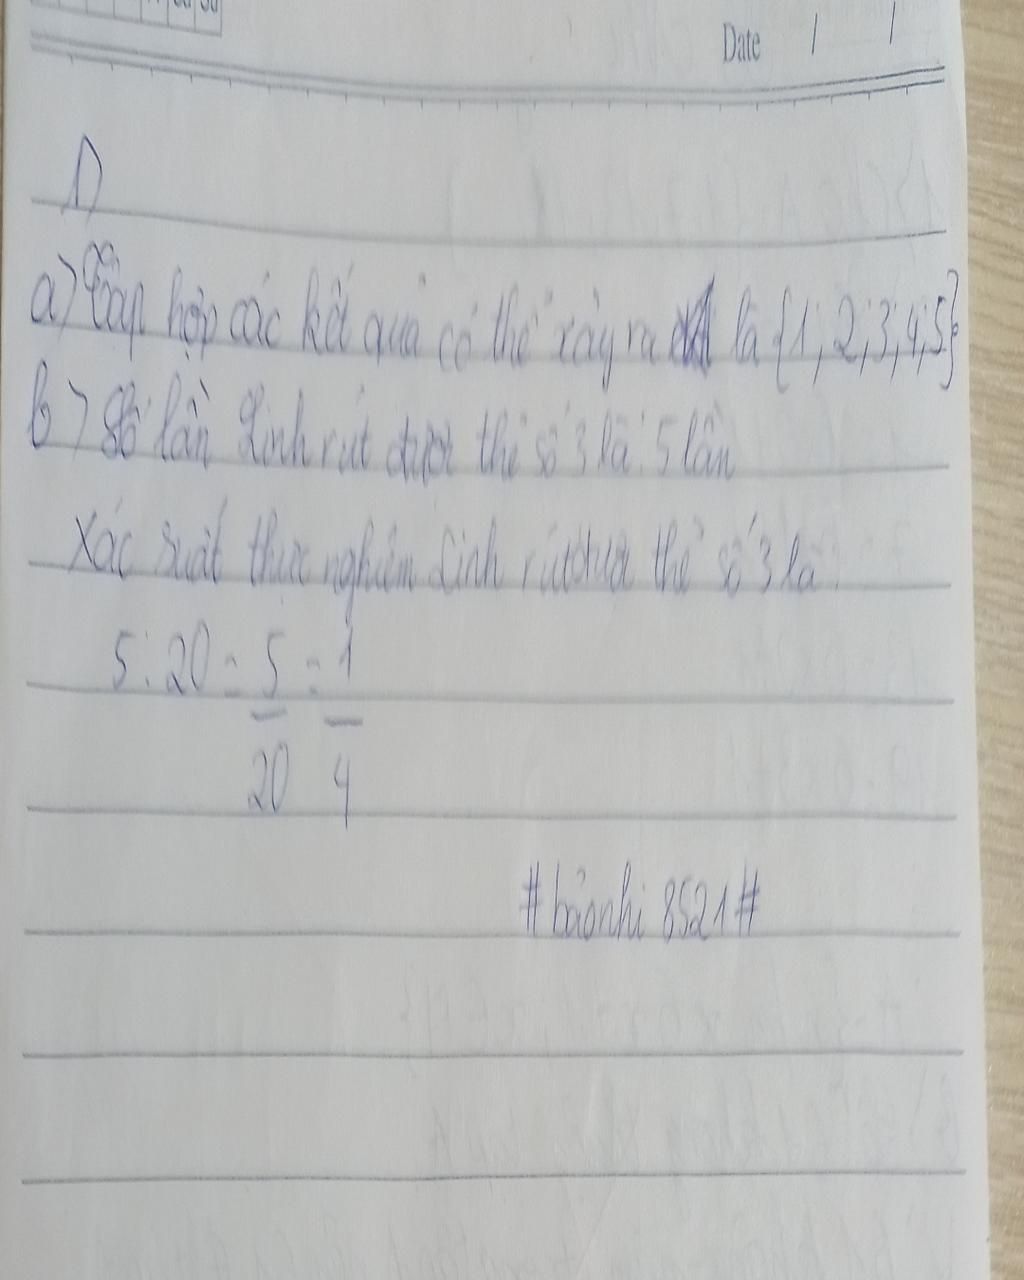 Date / /
1)
a) Tập hợp các kết quả có thể xảy ra là {1; 2; 3; 4; 5}
b) Số lần Linh rút được thẻ số 3 là: 5 lần
Xác suất thực nghiệm Linh rút được thẻ số 3 là:
5 : 20 = 5/20 = 1/4
#bảonhi 8521#